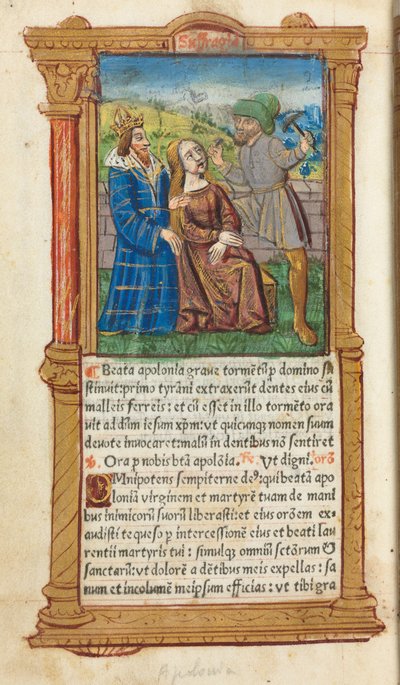 Suffragia
Beata apolonia grave tormētū ꝑ domino su
stinuit: primo tyrāni extraxerūt dentes eius cū
malleis ferreis: et cū esset in illo tormēto ora
uit ad dn̄m iesum xp̄m: vt quicunqꝫ nomen suum
deuote inuocaret: malū in dentibus nō sentiret
℣. Ora ꝓ nobis btā apolōia. ℟. Vt digni. orō
OMnipotens sempiterne de⁹: qui beatā apo
loniā virginem et martyrē tuam de mani
bus inimicorū suorū liberasti: et eius orōem ex⸗
audisti te queso ꝑ intercessionē eius et beati lau
rentii martyris tui: simulqꝫ omniū sctōrum &
sanctarū: vt dolorē a dētibus meis expellas: sa
num et incolumē meipsum efficias: vt tibi gra
Apolonia